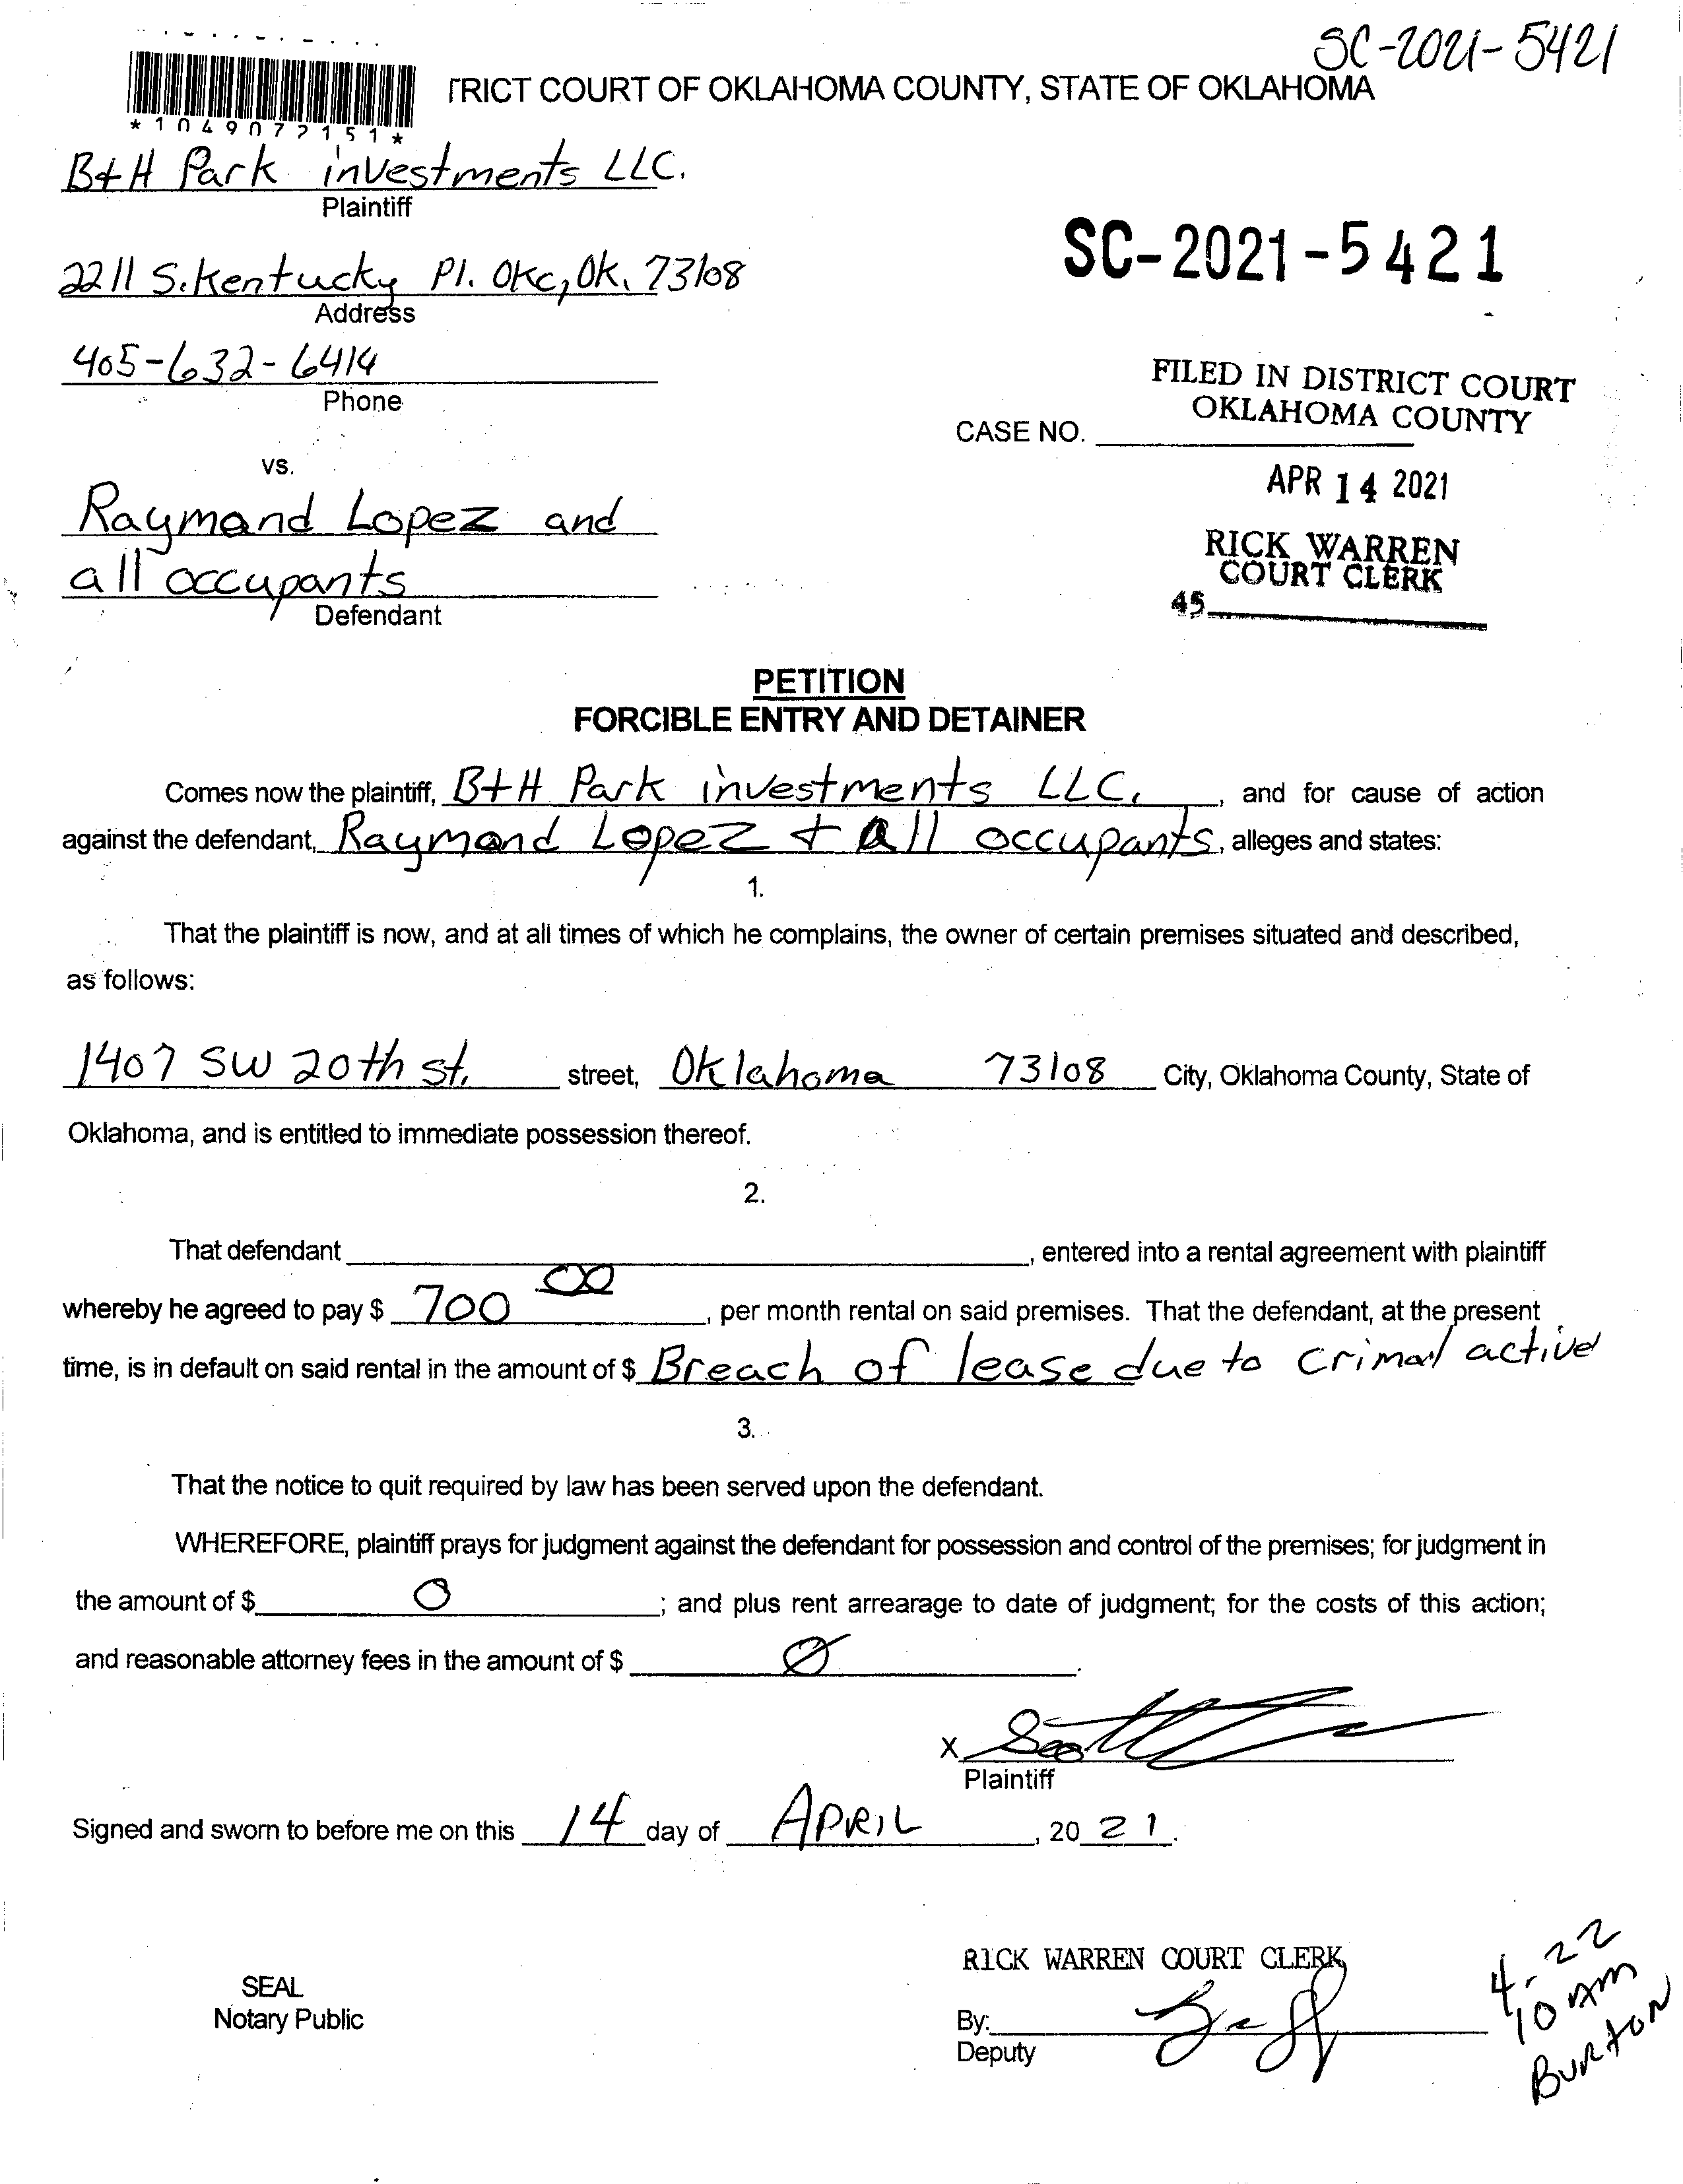 SC-2021-5421
TRICT COURT OF OKLAHOMA COUNTY, STATE OF OKLAHOMA
*1049072151*
B+H Park investments LLC.
Plaintiff
SC-2021-5421
2211 S. Kentucky Pl. OKC, OK. 73108
Address
405-632-6414
Phone
FILED IN DISTRICT COURT
OKLAHOMA COUNTY
CASE NO.
vs.
APR 14 2021
Raymond Lopez and
all occupants
Defendant
RICK WARREN
COURT CLERK
45
PETITION
FORCIBLE ENTRY AND DETAINER
Comes now the plaintiff, B+H Park investments LLC., and for cause of action
against the defendant, Raymond Lopez + all occupants, alleges and states:
1.
That the plaintiff is now, and at all times of which he complains, the owner of certain premises situated and described,
as follows:
1407 SW 20th st. street, Oklahoma 73108 City, Oklahoma County, State of
Oklahoma, and is entitled to immediate possession thereof.
2.
That defendant , entered into a rental agreement with plaintiff
whereby he agreed to pay $ 700 00, per month rental on said premises. That the defendant, at the present
time, is in default on said rental in the amount of $ Breach of lease due to crimal active
3.
That the notice to quit required by law has been served upon the defendant.
WHEREFORE, plaintiff prays for judgment against the defendant for possession and control of the premises; for judgment in
the amount of $ 0 ; and plus rent arrearage to date of judgment; for the costs of this action;
and reasonable attorney fees in the amount of $ 0.
X Scott
Plaintiff
Signed and sworn to before me on this 14 day of APRIL, 20 21.
RICK WARREN COURT CLERK
SEAL
Notary Public
By:
Deputy
4-22
10 AM
BURTON